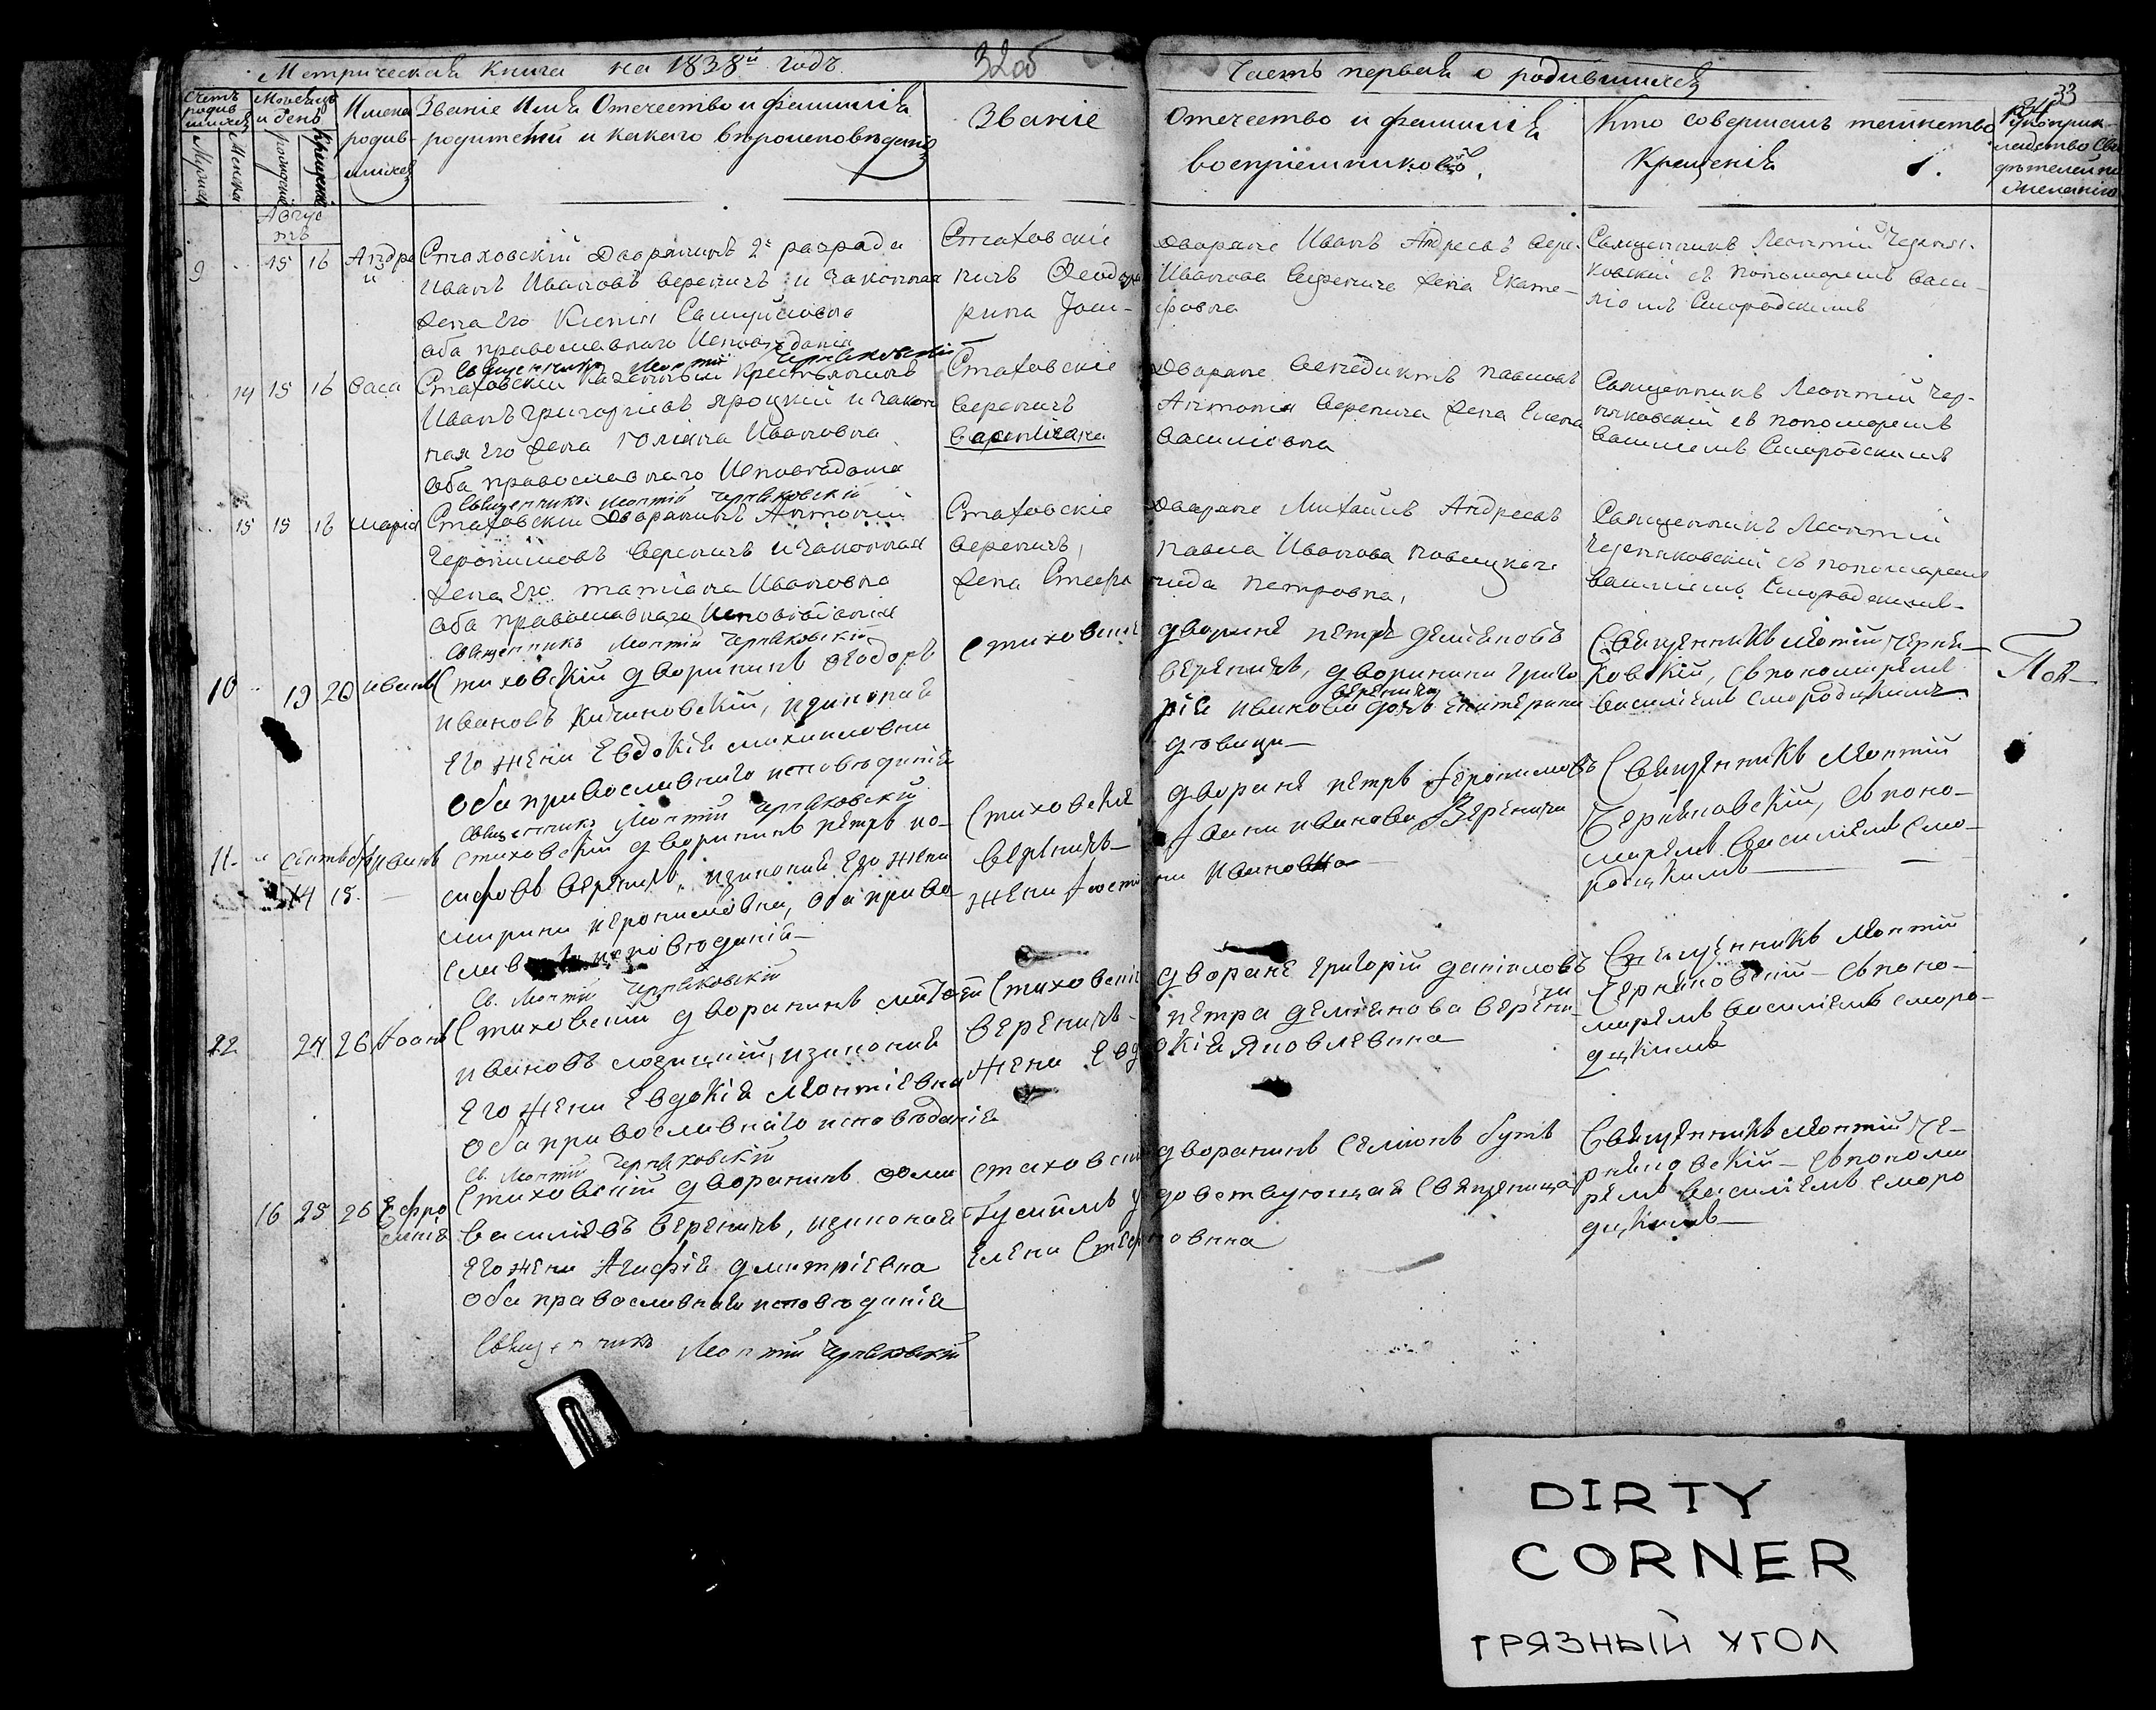 Метрическая книга на 1838й годъ
32об
Часть первая о родившихся
33
Счетъ родившихся
Мужеска
Женска
Месяцъ и день
Рожденія
Крещенія
Имена родившихся
Званіе Имя Отчество и фамилія
родителей и какаго вѣроисповѣданія
Званіе
Отечество и фамилія
воспріемниковъ
Кто совершалъ таинство
Крещенія
Августъ
9 15 16 Андрей
Стаховскій Дворянинъ 2го разряда
Иванъ Ивановъ Вереничъ и Законная
жена Его Ксенія Самуйловна
оба православнаго Исповѣданія
Священникъ Леонтій Черняковскій
Стаховскіе Дворяне Иванъ Андреевъ Вере-
ничъ Ивановa Веренича жена Екате-
рина
Священникъ Леонтій Черня-
ковскій съ пономаремъ Васи-
ліемъ Смородскимъ
14 15 16 Васа
Стаховскій Казенный Крестьянинъ
Иванъ Григорьевъ Яроцкій и закон
ная Его жена Юліана Ивановна
оба православнаго Исповѣданія
Священникъ Леонтій Черняковскій
Стаховскіе Дворяне Венедиктъ Павловъ
Вереничъ Антонія Веренича жена Елена
Василіовна
Священникъ Леонтій Чер-
няковскій съ пономаремъ
Василіемъ Смородскимъ
15 15 16 Марія
Стаховскій Дворянинъ Антоній
Іеронимовъ Вереничъ и Законная
жена Его Татіана Ивановна
оба православнаго Исповѣданія
Священникъ Леонтій Черняковскій
Стаховскіе Дворяне Михаилъ Андреевъ
Вереничъ, Павла Иванова
жена Стефанида Петровна,
Священникъ Леонтій
Черняковскій съ пономаремъ
Василіемъ Смородскимъ
10 19 20 Иванъ
Стаховскій дворянинъ Феодоръ
Ивановъ Качановскій, и законная
его жена Евдокія Михаиловна
оба православнаго исповѣданія
Священникъ Леонтій Черняковскій
Стаховскіе дворяне Петръ Деміановъ
Вереничъ, дворянина Григо
рія Иванова Веренича дочь Екатерина
дѣвица
Священникъ Леонтій Черня-
ковскій, съ пономаремъ
Василіемъ Смородцкимъ
11 Сентябрь Иванъ
14 15
Стаховскій дворянинъ Петръ Ио-
сифовъ Вереничъ, и законная Его жена
Марина Иеронимовна, оба право-
исповѣданія
Св. Леонтій Черняковскій
Стаховскіе дворяне Петръ Іеронимовъ
Вереничъ Іоана Иванова Веренича
жена Ивановна
Священникъ Леонтій
Черняковскій, съ поно-
маремъ Василіемъ Смо-
родцкимъ
12 24 26 Іоанъ
Стаховскій дворянинъ
Ивановъ, и законная
Его жена Евдокія Леонтіевна
оба православнаго исповѣданія
Св. Леонтій Черняковскій
Стаховскіе дворяне Григорій Даніиловъ
Вереничъ Петра Деміанова Веренича
жена Евдокія Яковлевна
Священникъ Леонтій
Черняковскій съ поно-
маремъ Василіемъ Сморо-
дцкимъ
16 25 26 Ефросинія
Стаховскій дворянинъ Фома
Василіевъ Вереничъ, и законная
Его жена Агафія Дмитріевна
оба православнаго исповѣданія
Священникъ Леонтій Черняковскій
Стаховскіе дворянинъ Симіонъ
вдовствующая Священица
Елена
Священникъ Леонтій Че-
рняковскій съ понома
ремъ Василіемъ Сморо
дцкимъ
DIRTY
CORNER
ГРЯЗНЫЙ УГОЛ